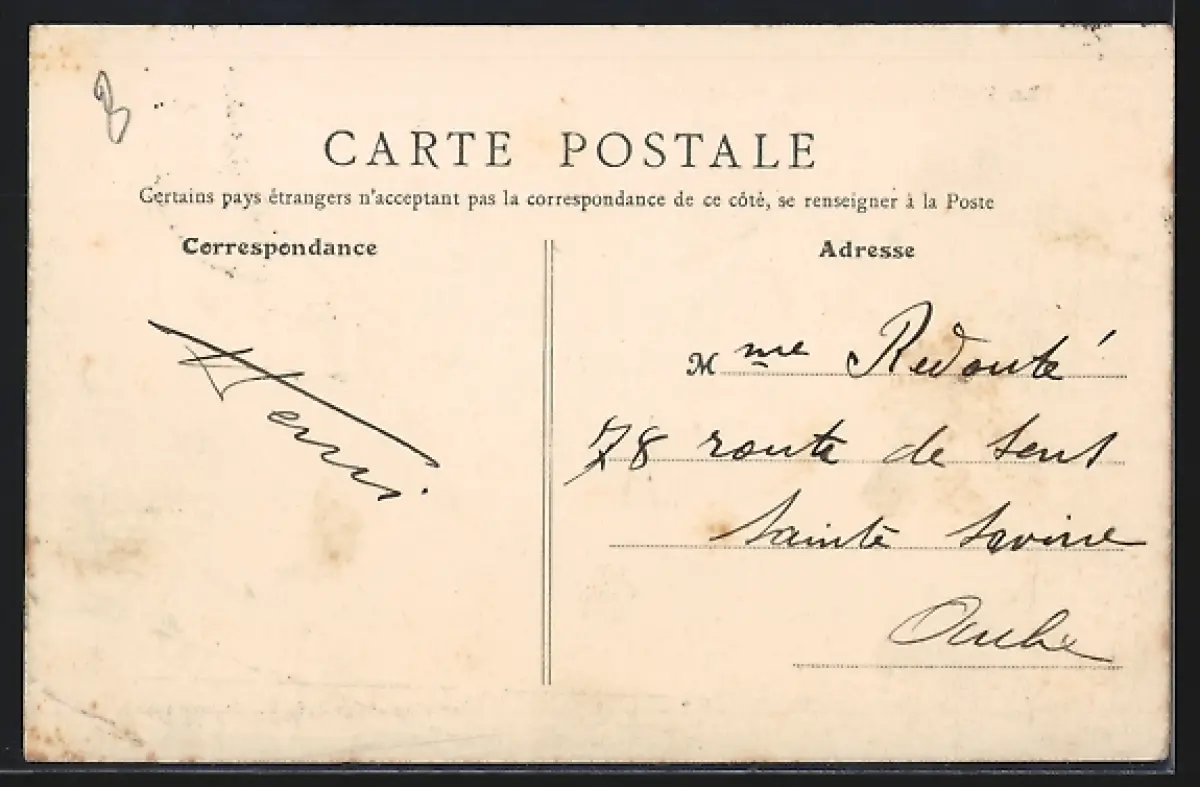 CARTE POSTALE
Certains pays étrangers n'acceptant pas la correspondance de ce côté, se renseigner à la Poste
Correspondance
Adresse
Mme Redouté
78 route de Sens
Sainte Savine
Aube